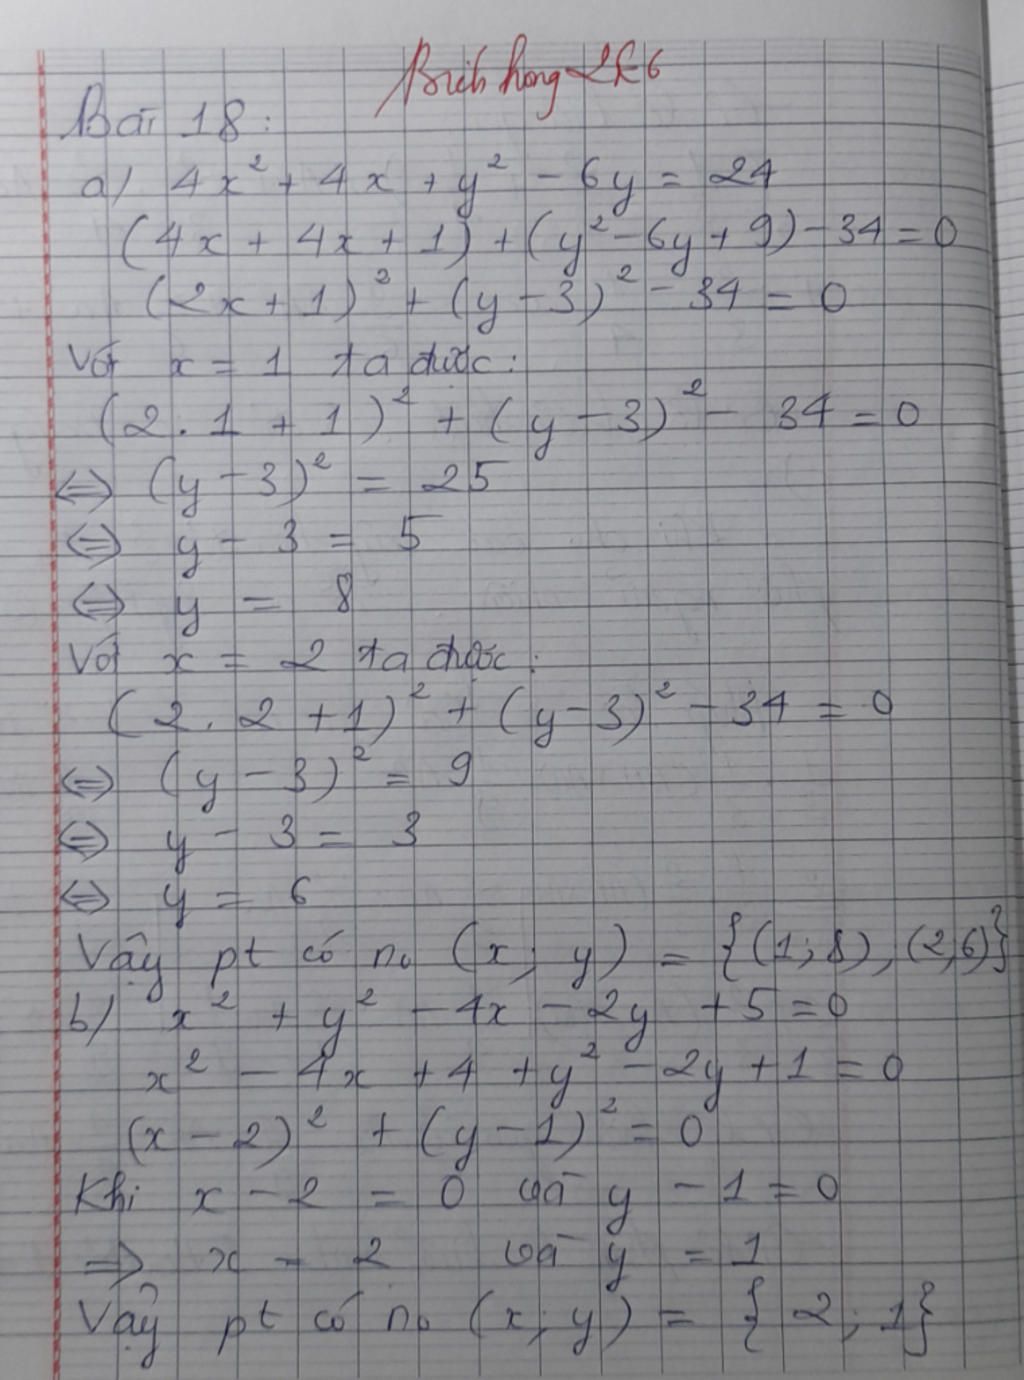 Bích hong 2k6
Bài 18:
a) 4x² + 4x + y² - 6y = 24
(4x + 4x + 1) + (y² - 6y + 9) - 34 = 0
(2x + 1)² + (y - 3)² - 34 = 0
Với x = 1 ta được:
(2.1 + 1)² + (y - 3)² - 34 = 0
⇔ (y - 3)² = 25
⇔ y - 3 = 5
⇔ y = 8
Với x = 2 ta được:
(2.2 + 1)² + (y - 3)² - 34 = 0
⇔ (y - 3)² = 9
⇔ y - 3 = 3
⇔ y = 6
Vậy pt có n₀ (x; y) = {(1; 8), (2; 6)}
b) x² + y² - 4x - 2y + 5 = 0
x² - 4x + 4 + y² - 2y + 1 = 0
(x - 2)² + (y - 1)² = 0
Khi x - 2 = 0 và y - 1 = 0
⇒ x = 2 và y = 1
Vậy pt có n₀ (x; y) = {2; 1}